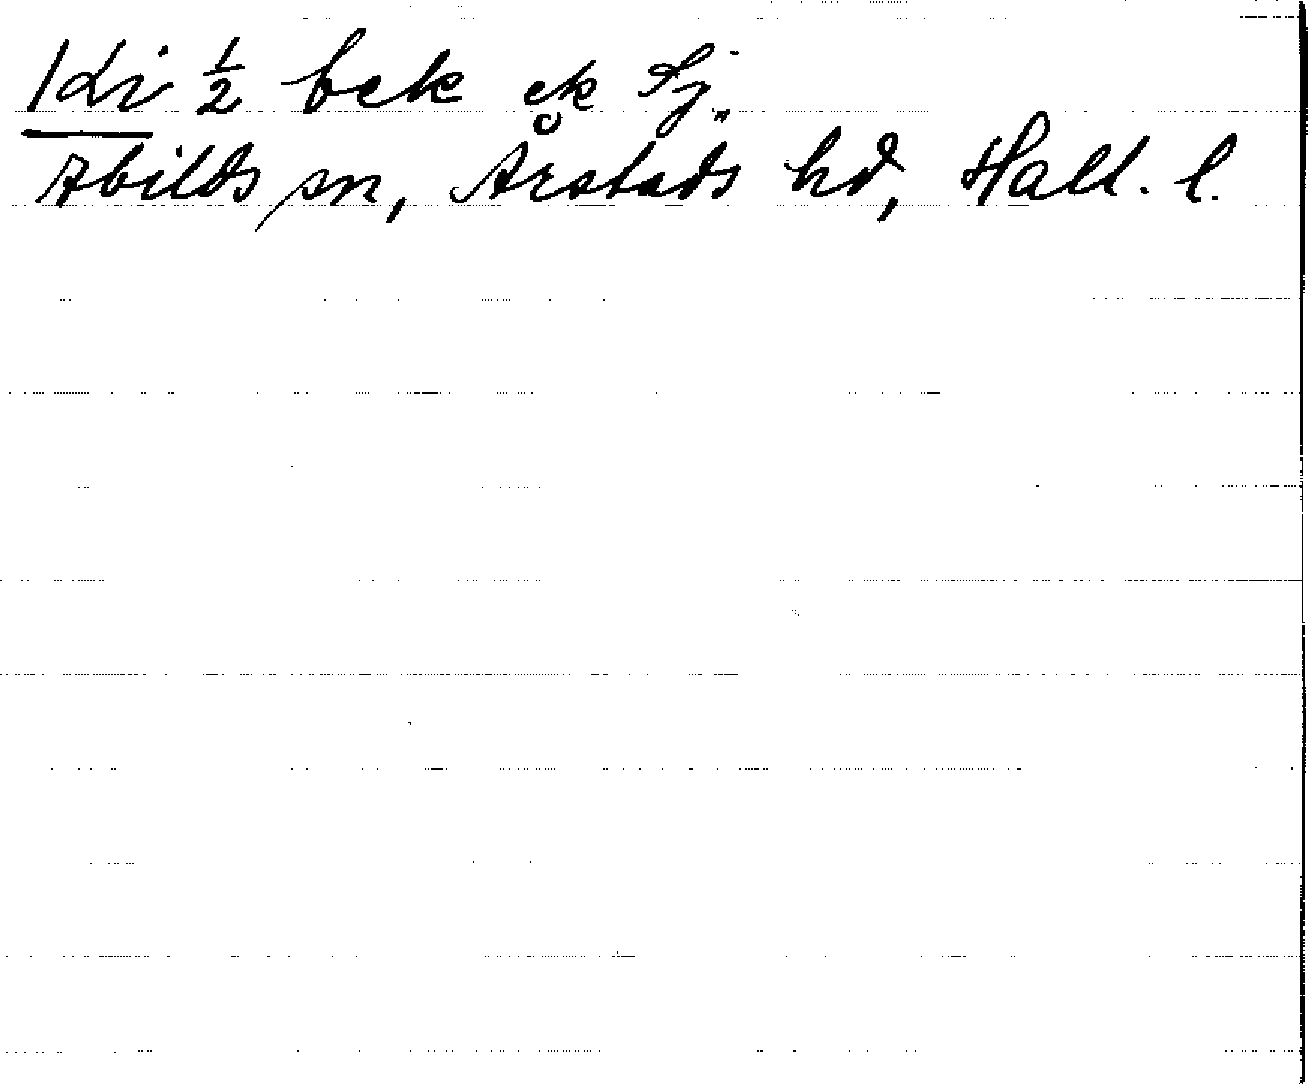 Ki ½ bek ek Sj.,
Abilds sn, Årstads hd, Hall. l.